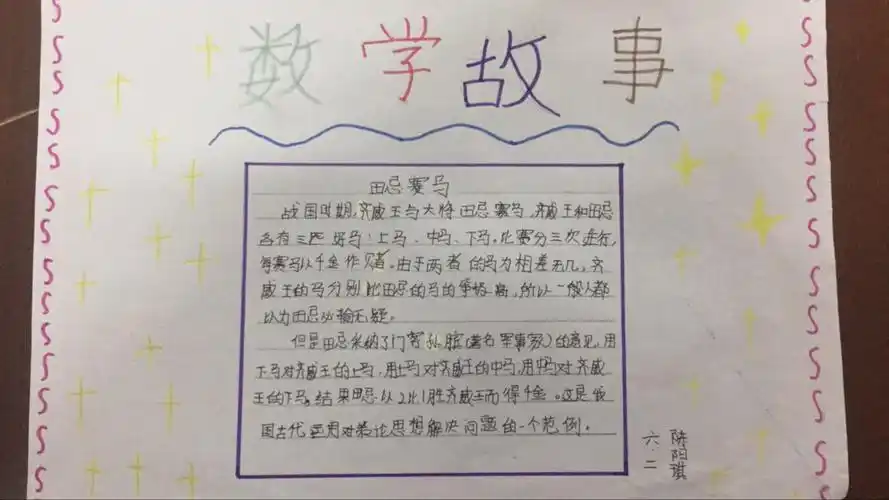 数学故事
田忌赛马
战国时期,齐威王与大将田忌赛马,齐威王和田忌
各有三匹好马:上马、中马、下马。比赛分三次进行,
每赛马以千金作赌。由于两者的马力相差无几,齐
威王的马分别比田忌的马的等级高,所以一般人都
以为田忌必输无疑。
但是田忌采纳了门客孙膑(著名军事家)的意见,用
下马对齐威王的上马,用上马对齐威王的中马,用中马对齐威
王的下马。结果田忌以2比1胜齐威王而得千金。这是我
国古代运用对策论思想解决问题的一个范例。
六.二
陈阳琪